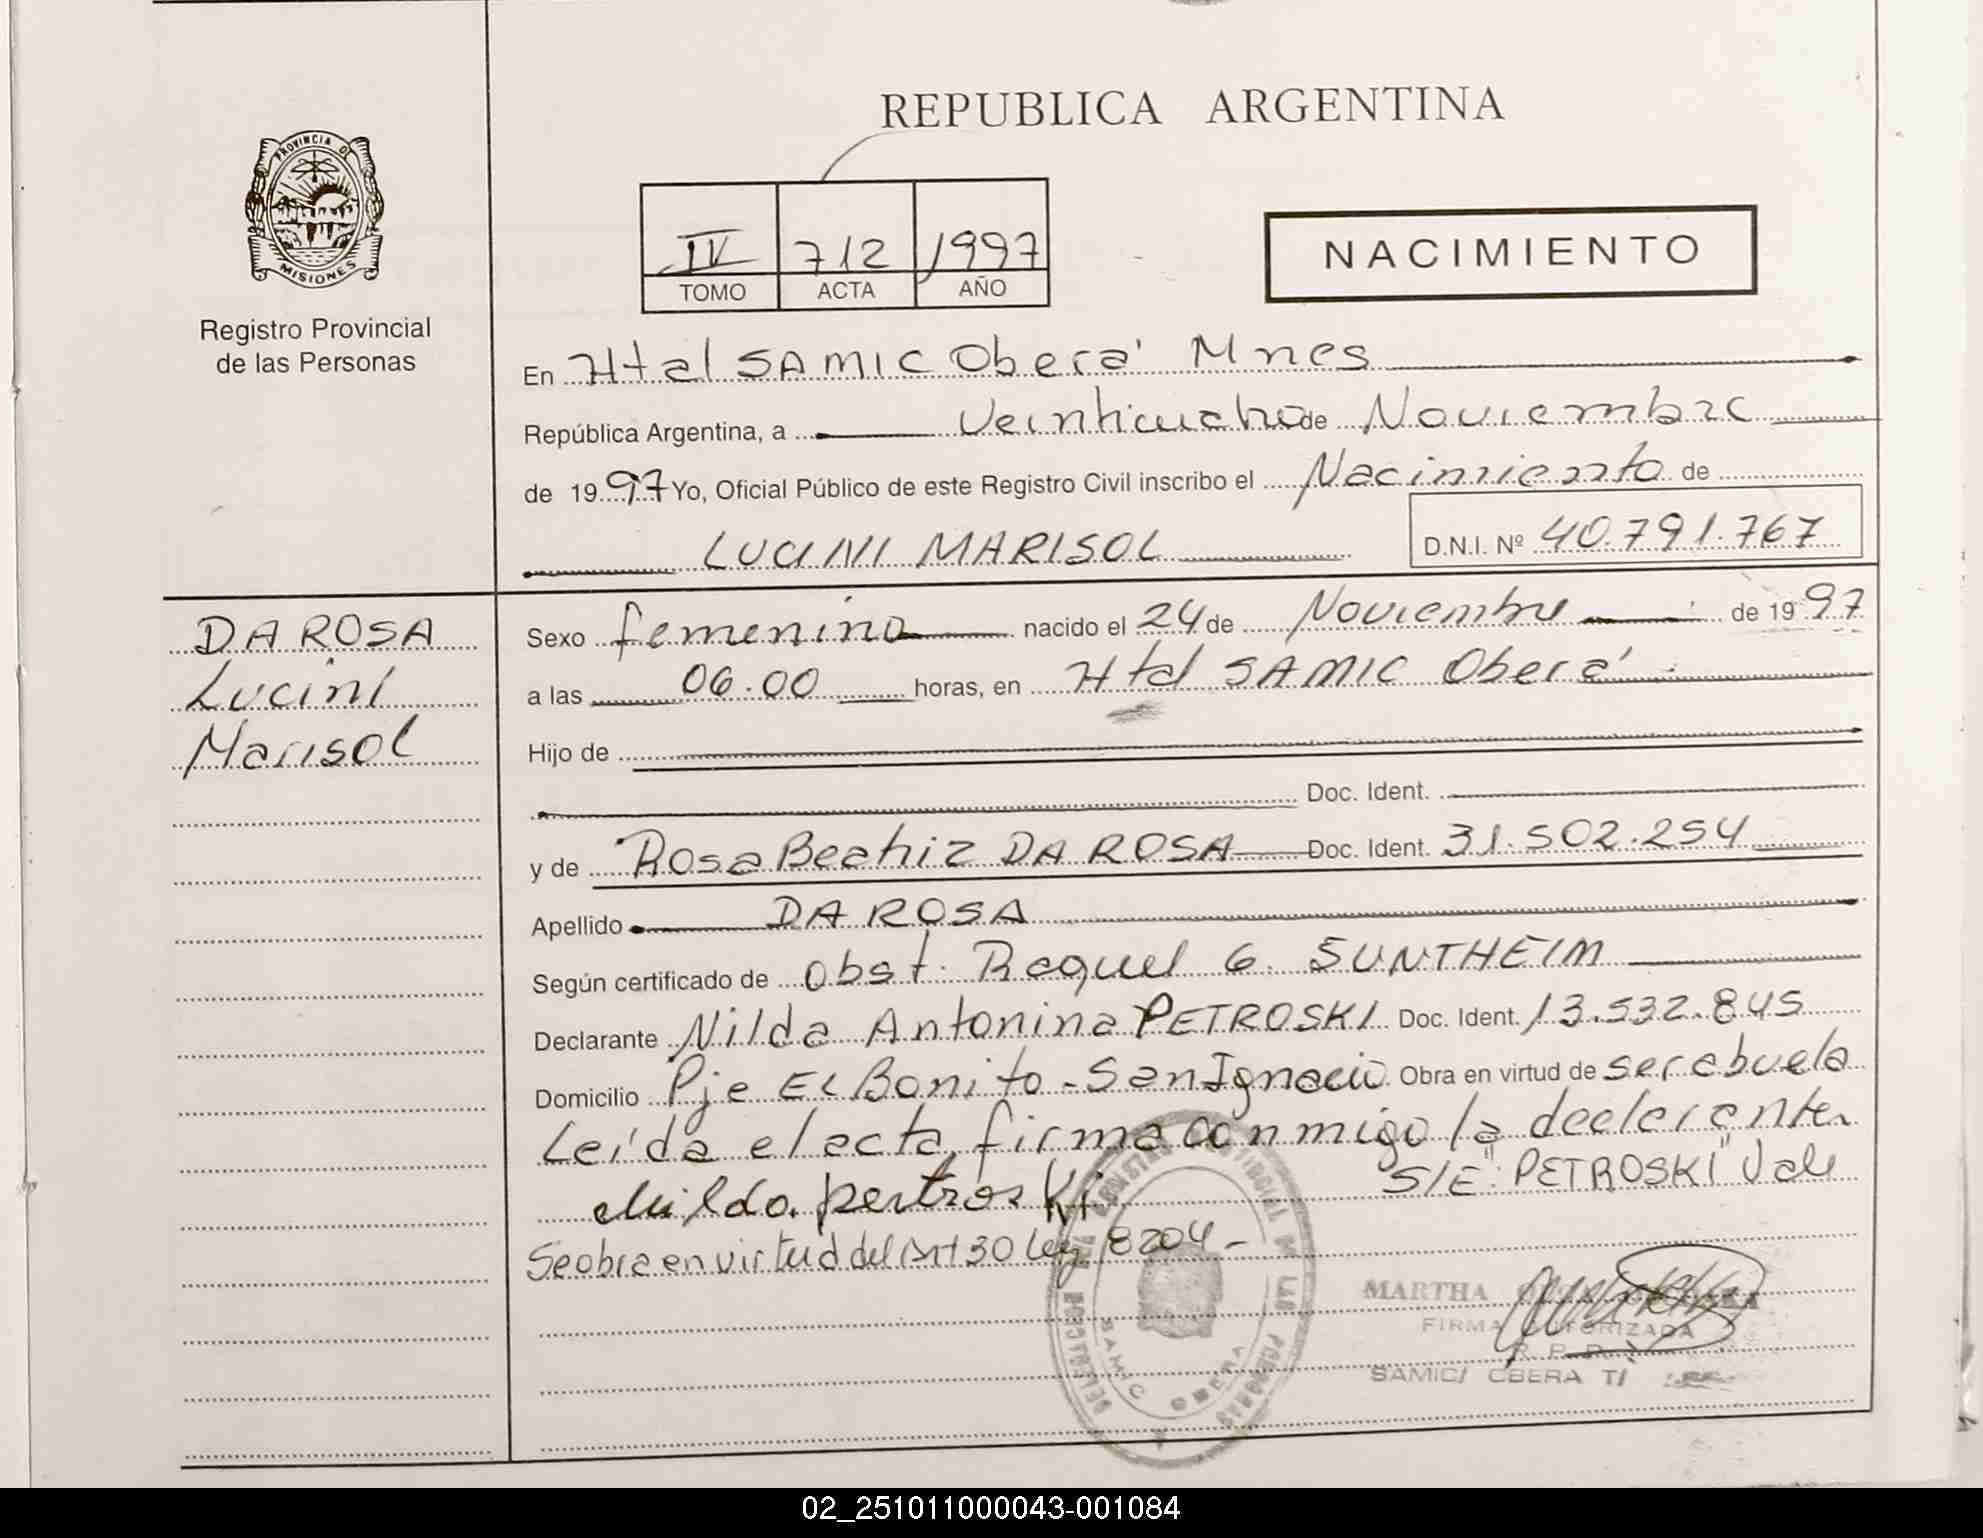 REPUBLICA ARGENTINA
PROVINCIA DE
MISIONES
Registro Provincial
de las Personas
IV 712 1997
TOMO ACTA AÑO
NACIMIENTO
En Htal SAMIC Oberá Mnes
República Argentina, a Veinticuatro de Noviembre
de 1997 Yo, Oficial Público de este Registro Civil inscribo el Nacimiento de
LUCINI MARISOL D.N.I. Nº 40.791.767
DA ROSA
Lucini
Marisol
Sexo femenino nacido el 24 de Noviembre de 1997
a las 06.00 horas, en Htal SAMIC Oberá
Hijo de
Doc. Ident.
y de Rosa Beatriz DA ROSA Doc. Ident. 31.502.254
Apellido DA ROSA
Según certificado de Obst. Raquel G. SUNTHEIM
Declarante Nilda Antonina PETROSKI Doc. Ident. 13.532.845
Domicilio Pje El Bonito - San Ignacio Obra en virtud de ser abuela
Leída el acta, firma conmigo la declarante.
S/E: "PETROSKI" Vale
Nilda pertroski
Se obra en virtud del Art 30 Ley 18204 -
MARTHA
FIRMA AUTORIZADA
R. P. P.
SAMIC OBERA
SAMIC OBERA
02_251011000043-001084